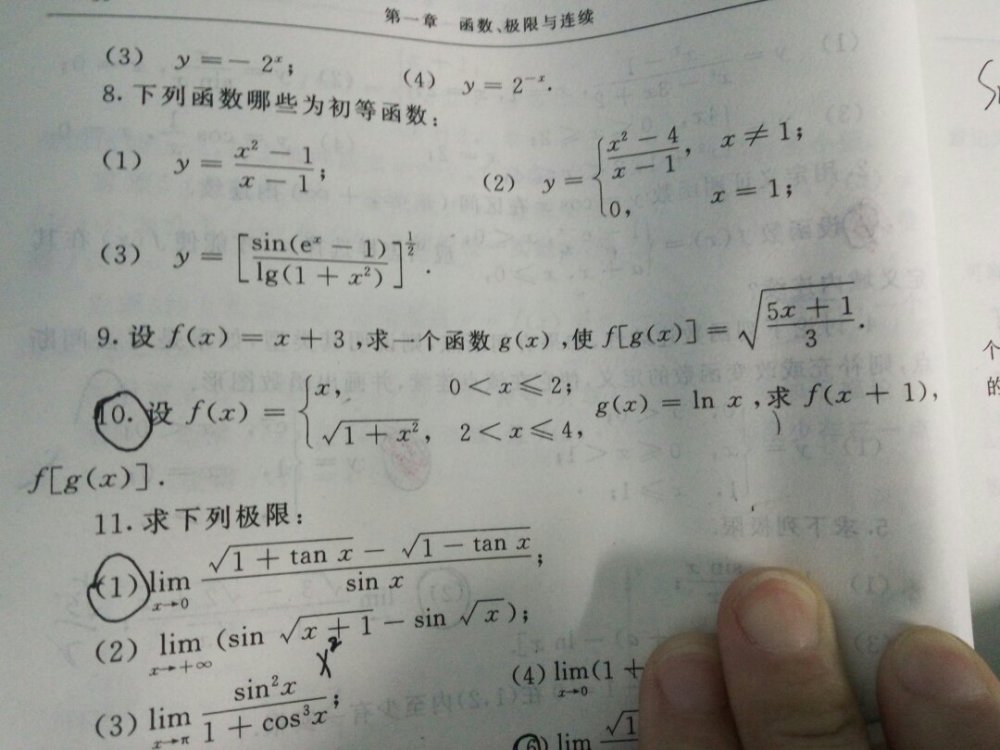 第一章 函数、极限与连续
(3) y = − 2ˣ; (4) y = 2⁻ˣ.
8. 下列函数哪些为初等函数:
(1) y = (x² − 1)/(x − 1); (2) y = { (x² − 4)/(x − 1), x ≠ 1; 0, x = 1;
(3) y = [sin(eˣ − 1)/lg(1 + x²)]^(1/2).
9. 设 f(x) = x + 3,求一个函数 g(x),使 f[g(x)] = √((5x + 1)/3).
10. 设 f(x) = { x, 0 < x ⩽ 2; √(1 + x²), 2 < x ⩽ 4, g(x) = ln x,求 f(x + 1),
f[g(x)].
11. 求下列极限:
(1) lim x→0 (√(1 + tan x) − √(1 − tan x))/sin x;
(2) lim x→+∞ (sin √(x + 1) − sin √x);
x²
(3) lim x→π sin²x/(1 + cos³x); (4) lim x→0 (1 +
(6) lim √1
个
的